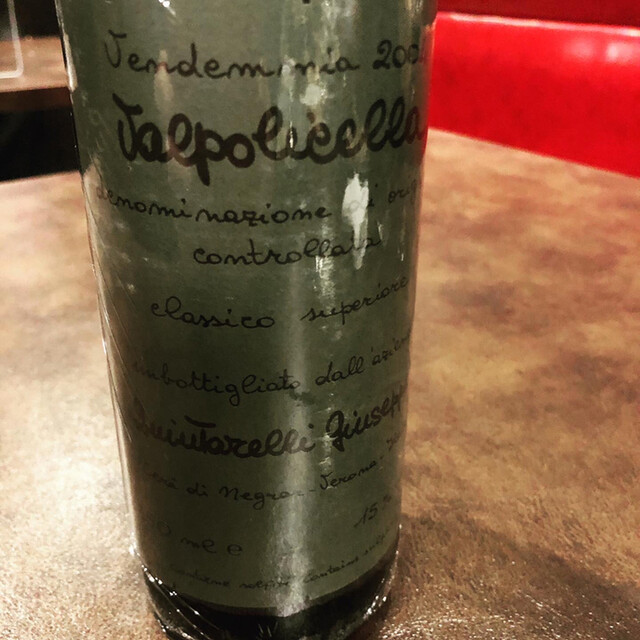 Vendemmia 200
Valpolicella
denominazione di orig
controllata
classico superiore
imbottigliato dall'azien
Quintarelli Giusepp
di Negrar - Verona
ml e 15%
contains